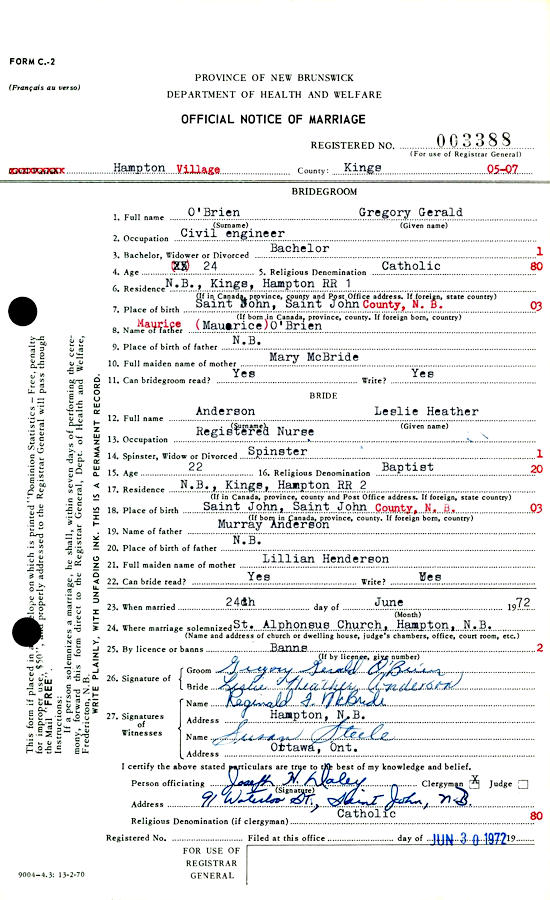 FORM C.-2
(Français au verso)
PROVINCE OF NEW BRUNSWICK
DEPARTMENT OF HEALTH AND WELFARE
OFFICIAL NOTICE OF MARRIAGE
REGISTERED NO. 003388
(For use of Registrar General)
Hampton Village County: Kings 05-07
BRIDEGROOM
1. Full name O'Brien Gregory Gerald
(Surname) (Given name)
2. Occupation Civil engineer
3. Bachelor, Widower or Divorced Bachelor 1
4. Age 24 5. Religious Denomination Catholic 80
6. Residence N.B., Kings, Hampton RR 1
(If in Canada, province, county and Post Office address. If foreign, state country)
7. Place of birth Saint John, Saint John County, N. B. 03
(If born in Canada, province, county. If foreign born, country)
8. Name of father Maurice (Mauarice) O'Brien
9. Place of birth of father N.B.
10. Full maiden name of mother Mary McBride
11. Can bridegroom read? Yes Write? Yes
BRIDE
12. Full name Anderson Leslie Heather
(Surname) (Given name)
13. Occupation Registered Nurse
14. Spinster, Widow or Divorced Spinster 1
15. Age 22 16. Religious Denomination Baptist 20
17. Residence N.B., Kings, Hampton RR 2
(If in Canada, province, county and Post Office address. If foreign, state country)
18. Place of birth Saint John, Saint John County, N. B. 03
(If born in Canada, province, county. If foreign born, country)
19. Name of father Murray Anderson
20. Place of birth of father N.B.
21. Full maiden name of mother Lillian Henderson
22. Can bride read? Yes Write? Yes
23. When married 24th day of June 1972
(Month)
24. Where marriage solemnized St. Alphonsus Church, Hampton, N.B.
(Name and address of church or dwelling house, judge's chambers, office, court room, etc.)
25. By licence or banns Banns 2
(If by licence, give number)
26. Signature of Groom Gregory Gerald O'Brien
Bride Leslie Heather Anderson
27. Signatures of Witnesses Name Reginald F. McBride
Address Hampton, N.B.
Name Susan Steele
Address Ottawa, Ont.
I certify the above stated particulars are true to the best of my knowledge and belief.
Person officiating Joseph H. Daley Clergyman X Judge
(Signature)
Address 91 Waterloo St., Saint John, N.B.
Religious Denomination (if clergyman) Catholic 80
Registered No. Filed at this office day of JUN 30 1972 19
FOR USE OF
REGISTRAR
GENERAL
9004-4.3: 13-2-70
This form if placed in a envelope on which is printed "Dominion Statistics – Free, penalty
for improper use, $50", and properly addressed to the Registrar General will pass through
the Mail "FREE".
Instructions:
If a person solemnizes a marriage, he shall, within seven days of performing the cere-
mony, forward this form direct to the Registrar General, Dept. of Health and Welfare,
Fredericton, N.B.
WRITE PLAINLY, WITH UNFADING INK. THIS IS A PERMANENT RECORD.